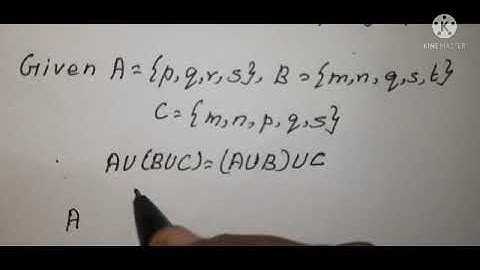 KINEMASTER
Given A = {p,q,r,s}, B = {m,n,q,s,t}
C = {m,n,p,q,s}
AU(BUC)=(AUB)UC
A